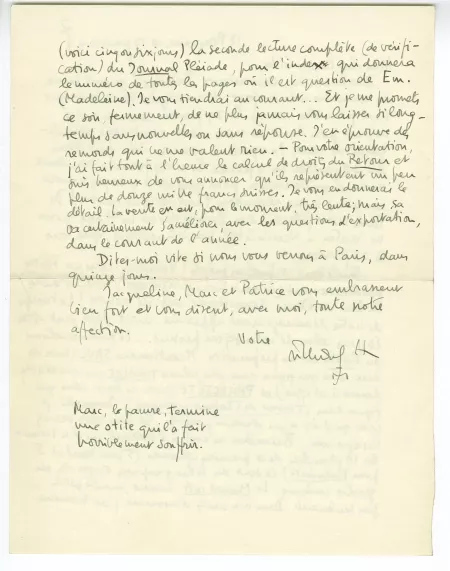 (voici cinq ou six jours) la seconde lecture complète (de vérifi-
cation) du Journal Pléiade, pour l'index qui donnera
le numéro de toutes les pages où il est question de Em.
(Madeleine). Je vous tiendrai au courant... Et je me promets
ce soir, fermement, de ne plus jamais vous laisser si long-
temps sans nouvelles ou sans réponse. J'en éprouve des
remords qui ne me valent rien. — Pour votre orientation,
j'ai fait tout à l'heure le calcul de droits du Retour et
suis heureux de vous annoncer qu'ils représentent un peu
plus de douze mille francs suisses. Je vous en donnerai le
détail. La vente en est, pour le moment, très lente; mais ça
va certainement s'améliorer, avec les questions d'exportation,
dans le courant de l'année.
Dites-moi vite si nous vous verrons à Paris, dans
quinze jours.
Jacqueline, Marc et Patrice vous embrassent
bien fort et vous disent, avec moi, toute notre
affection.
Votre
Richard H
Marc, le pauvre, termine
une otite qui l'a fait
horriblement souffrir.